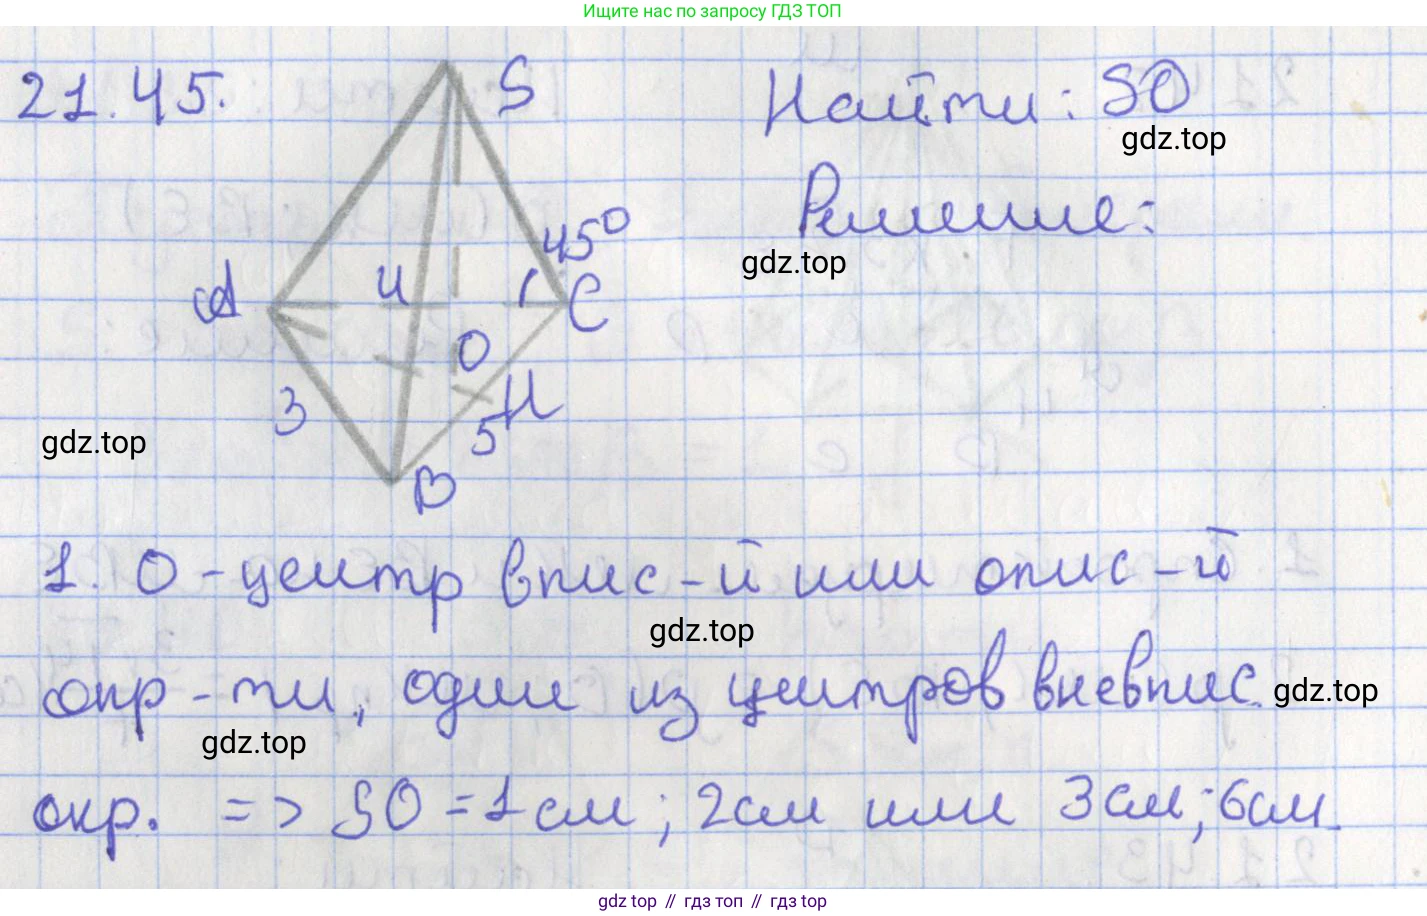 Ищите нас по запросу ГДЗ ТОП
21.45.
S
Найти: SO
gdz.top
Решение:
45°
gdz.top
A
4
C
O
3
H
5
gdz.top
B
1. O - центр впис-й или опис-й
gdz.top
окр-ти, один из центров вневпис. gdz.top
gdz.top
окр. => SO = 1 см; 2 см или 3 см; 6 см.
gdz.top // гдз топ // гдз top